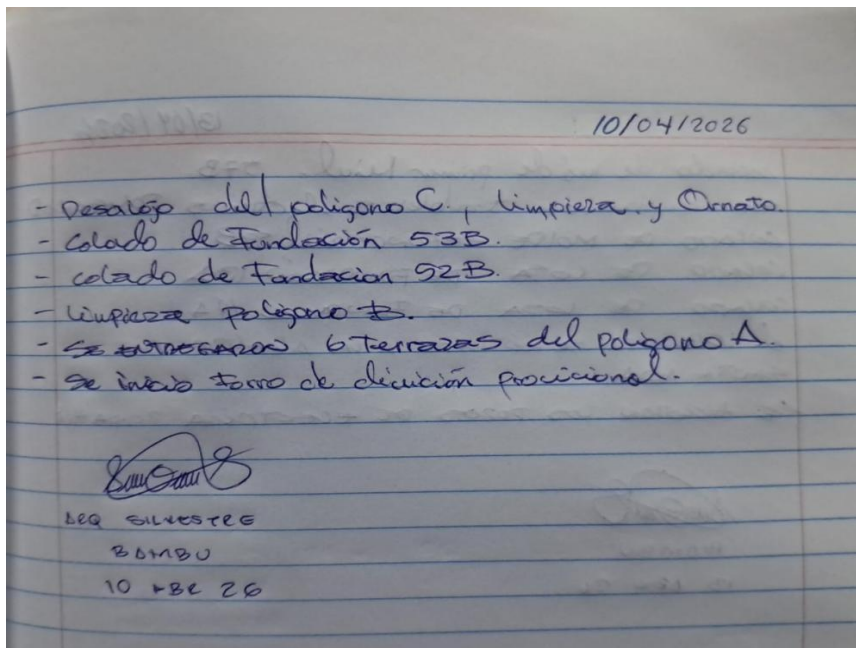 10/04/2026
- Desalojo del poligono C, limpieza y Ornato.
- Colado de Fundación 53B.
- colado de Fundacion 52B.
- Limpieza poligono B.
- SE ENTREGARON 6 Terrazas del poligono A.
- se inicio forro de dicición procicional.
ARQ SILVESTRE
BAMBU
10 ABR 26